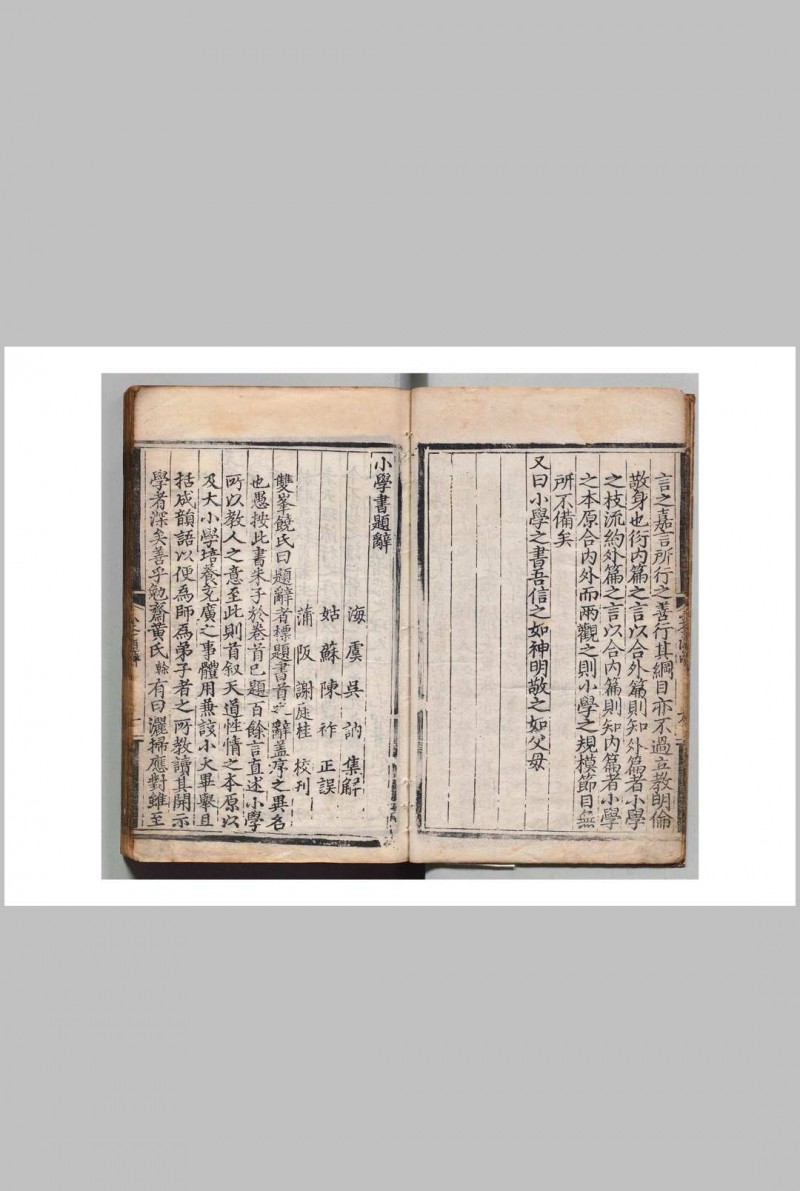 言之嘉言所行之善行其綱目亦不過立教明倫
敬身也衍內篇之言以合外篇則知外篇者小學
之枝流約外篇之言以合內篇則知內篇者小學
之本原合內外而兩觀之則小學之規模節目無
所不備矣
又曰小學之書吾信之如神明敬之如父母
小學書題辭
海虞吳訥 集解
姑蘇陳祚 正誤
蒲阪謝庭桂 校刊
雙峯饒氏曰題辭者標題書首之辭盖序之異名
也愚按此書朱子於卷首已題百餘言直述小學
所以教人之意至此則首叙天道性情之本原以
及大小學培養充廣之事體用兼該小大畢舉且
括成韻語以便為師為弟子者之所教讀其開示
學者深矣善乎勉齋黃氏榦有曰灑掃應對雖至